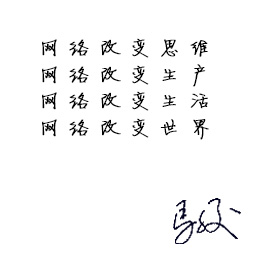 网络改变思维
网络改变生产
网络改变生活
网络改变世界